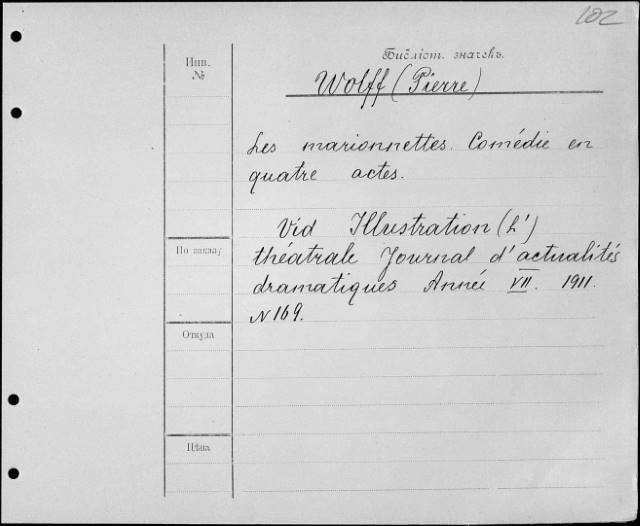 102
Инв.
№
Библіот. значекъ.
Wolff (Pierre)
Les marionnettes. Comédie en
quatre actes.
Vid Illustration (L')
По заказу
théatrale Journal d'actualités
dramatiques Année VII. 1911.
N 169.
Откуда
Цѣна